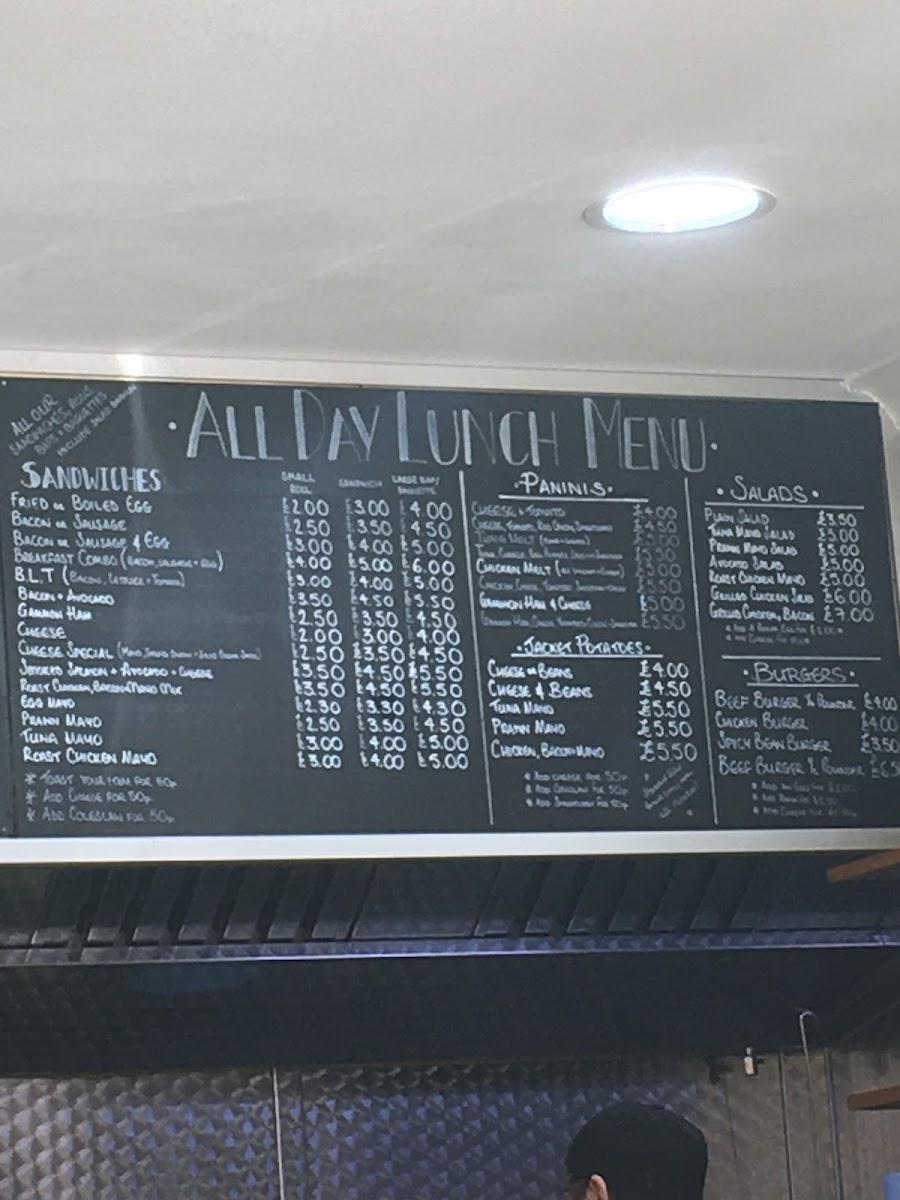 ALL OUR
SANDWICHES, ROLLS
BAPS + BAGUETTES
INCLUDE SALAD GARNISH
· ALL DAY LUNCH MENU ·
SANDWICHES
SMALL ROLL SANDWICH LARGE BAP/ BAGUETTE
FRIED OR BOILED EGG £2.00 £3.00 £4.00
BACON OR SAUSAGE £2.50 £3.50 £4.50
BACON OR SAUSAGE & EGG £3.00 £4.00 £5.00
BREAKFAST COMBO (BACON, SAUSAGE + EGG) £4.00 £5.00 £6.00
B.L.T (BACON, LETTUCE + TOMATO) £3.00 £4.00 £5.00
BACON + AVOCADO £3.50 £4.50 £5.50
GAMMON HAM £2.50 £3.50 £4.50
CHEESE £2.00 £3.00 £4.00
CHEESE SPECIAL £2.50 £3.50 £4.50
SMOKED SALMON + AVOCADO + CHEESE £3.50 £4.50 £5.50
ROAST CHICKEN, BACON + MAYO MIX £3.50 £4.50 £5.50
EGG MAYO £2.30 £3.30 £4.30
PRAWN MAYO £2.50 £3.50 £4.50
TUNA MAYO £3.00 £4.00 £5.00
ROAST CHICKEN MAYO £3.00 £4.00 £5.00
* TOAST YOUR ITEM FOR 50p
* ADD CHEESE FOR 50p
* ADD COLESLAW FOR 50p
· PANINIS ·
CHEESE + TOMATO £4.00
CHEESE, TOMATO, RED ONION, £4.50
TUNA MELT £5.00
£5.50
CHICKEN MELT £5.00
£5.50
GAMMON HAM & CHEESE £5.00
£5.50
· JACKET POTATOES ·
CHEESE OR BEANS £4.00
CHEESE & BEANS £4.50
TUNA MAYO £5.50
PRAWN MAYO £5.50
CHICKEN, BACON MAYO £5.50
* ADD CHEESE FOR 50p
* ADD COLESLAW FOR 50p
* ADD FOR 50p
· SALADS ·
PLAIN SALAD £3.50
TUNA MAYO SALAD £5.00
PRAWN MAYO SALAD £5.00
AVOCADO SALAD £5.00
ROAST CHICKEN MAYO £5.00
GRILLED CHICKEN SALAD £6.00
GRILLED CHICKEN, BACON £7.00
· BURGERS ·
BEEF BURGER ¼ POUNDER £4.00
CHICKEN BURGER £4.00
SPICY BEAN BURGER £3.50
BEEF BURGER ½ POUNDER